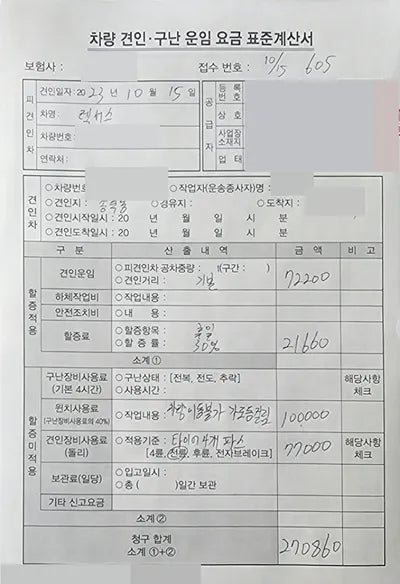 차량 견인·구난 운임 요금 표준계산서
보험사 :
접수 번호 : 10/15 605
피견인차
견인일자: 2023년 10월 15일
차명: 렉서스
차량번호:
연락처:
공급자
등록번호
상 호
사업장소재지
업 태
견인차
○차량번호 ○작업자(운송종사자)명 :
○견인지 : 송악읍 ○경유지 : ○도착지 :
○견인시작일시 : 20 년 월 일 시 분
○견인도착일시 : 20 년 월 일 시 분
구 분 산 출 내 역 금 액 비 고
할증적용
견인운임 ○피견인차 공차중량 : t(구간 : )
○견인거리 : 기본 72200
하체작업비 ○작업내용 :
안전조치비 ○내 용 :
할증료 ○할증항목 : 휴일
○할 증 률 : 30% 21660
소계 ①
할증미적용
구난장비사용료 (기본 4시간) ○구난상태 : [전복, 전도, 추락]
○사용시간 : 해당사항 체크
윈치사용료 (구난장비사용료의 40%) ○작업내용 : 차량이동불가 100,000
견인장비사용료 (돌리) ○적용기준 : 타이어 4개
[4륜, 전륜, 후륜, 전자브레이크] 77000 해당사항 체크
보관료(일당) ○입고일시 :
○총 ( )일간 보관
기타 신고요금
소계 ②
청구 합계
소계 ①+② 270860